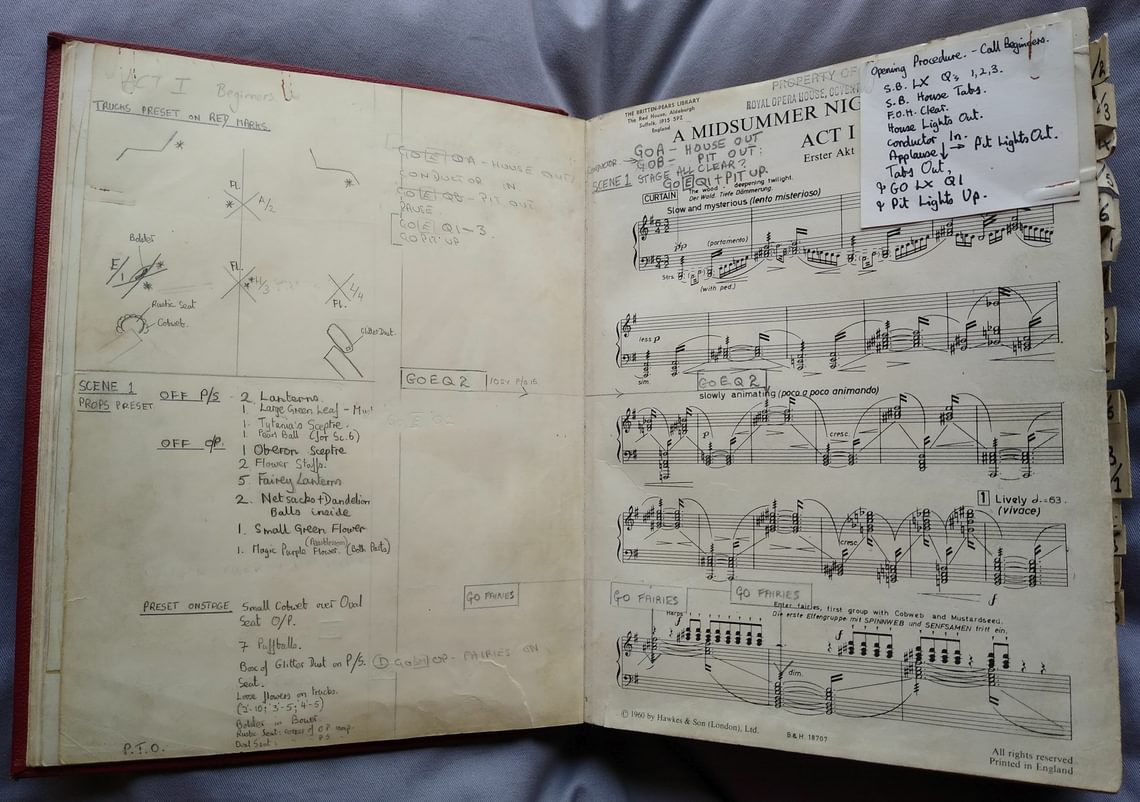 ACT I Beginners.
TRUCKS PRESET ON RED MARKS.
FL.
A/2
Bolder
E/1
FL.
H/3
L/4
FL.
Rustic Seat
Cobweb.
Glitter Dust.
GO E QA - HOUSE OUT
CONDUCTOR IN
GO E QB - PIT OUT
PAUSE
GO E Q1-3.
GO PIT UP
SCENE 1
PROPS PRESET
OFF P/S - 2 Lanterns.
1 Large Green Leaf -
1. Tytania's Sceptre.
1 Pearl Ball (for Sc.6)
OFF O/P. 1 Oberon Sceptre
2 Flower Staffs.
5 Fairey Lanterns
2. Net sacks + Dandelion
Balls inside
1. Small Green Flower
1. Magic Purple Flower. (Both Parts)
GO E Q 2
PRESET ONSTAGE Small Cobwet over Oval
Seat O/P.
7 Puffballs.
Box of Glitter Dust on P/S.
Seat.
Loose flowers on trucks.
(2-10; 3-5; 4-5)
Bolder in Bower.
GO FAIRIES
OP - FAIRIES ON
P.T.O.
THE BRITTEN-PEARS LIBRARY
The Red House, Aldeburgh
Suffolk, IP15 5PZ
England
PROPERTY OF
ROYAL OPERA HOUSE, COVEN
A MIDSUMMER NIG
ACT I
Erster Akt
GO A - HOUSE OUT
CONDUCTOR → GO B - PIT OUT:
SCENE 1 STAGE ALL CLEAR?
GO E Q1 + PIT UP.
Opening Procedure. - Call Beginners.
S.B. LX Qs 1,2,3.
S.B. House Tabs.
F.O.H. Clear.
House Lights Out.
Conductor In.
Applause → Pit Lights Out.
Tabs Out,
& GO LX Q1
& Pit Lights Up.
CURTAIN The wood, deepening twilight.
Der Wald. Tiefe Dämmerung.
Slow and mysterious (lento misterioso)
pp (portamento)
Strs.
(with ped.)
less p
sim.
GO E Q 2
slowly animating (poco a poco animando)
p
cresc.
1 Lively 𝅗𝅥.=63.
(vivace)
cresc.
f
GO FAIRIES
GO FAIRIES
Enter fairies, first group with Cobweb and Mustardseed.
Die erste Elfengruppe mit SPINNWEB und SENFSAMEN tritt ein.
Harps
f
f
dim.
© 1960 by Hawkes & Son (London), Ltd.
B. & H. 18707
All rights reserved
Printed in England